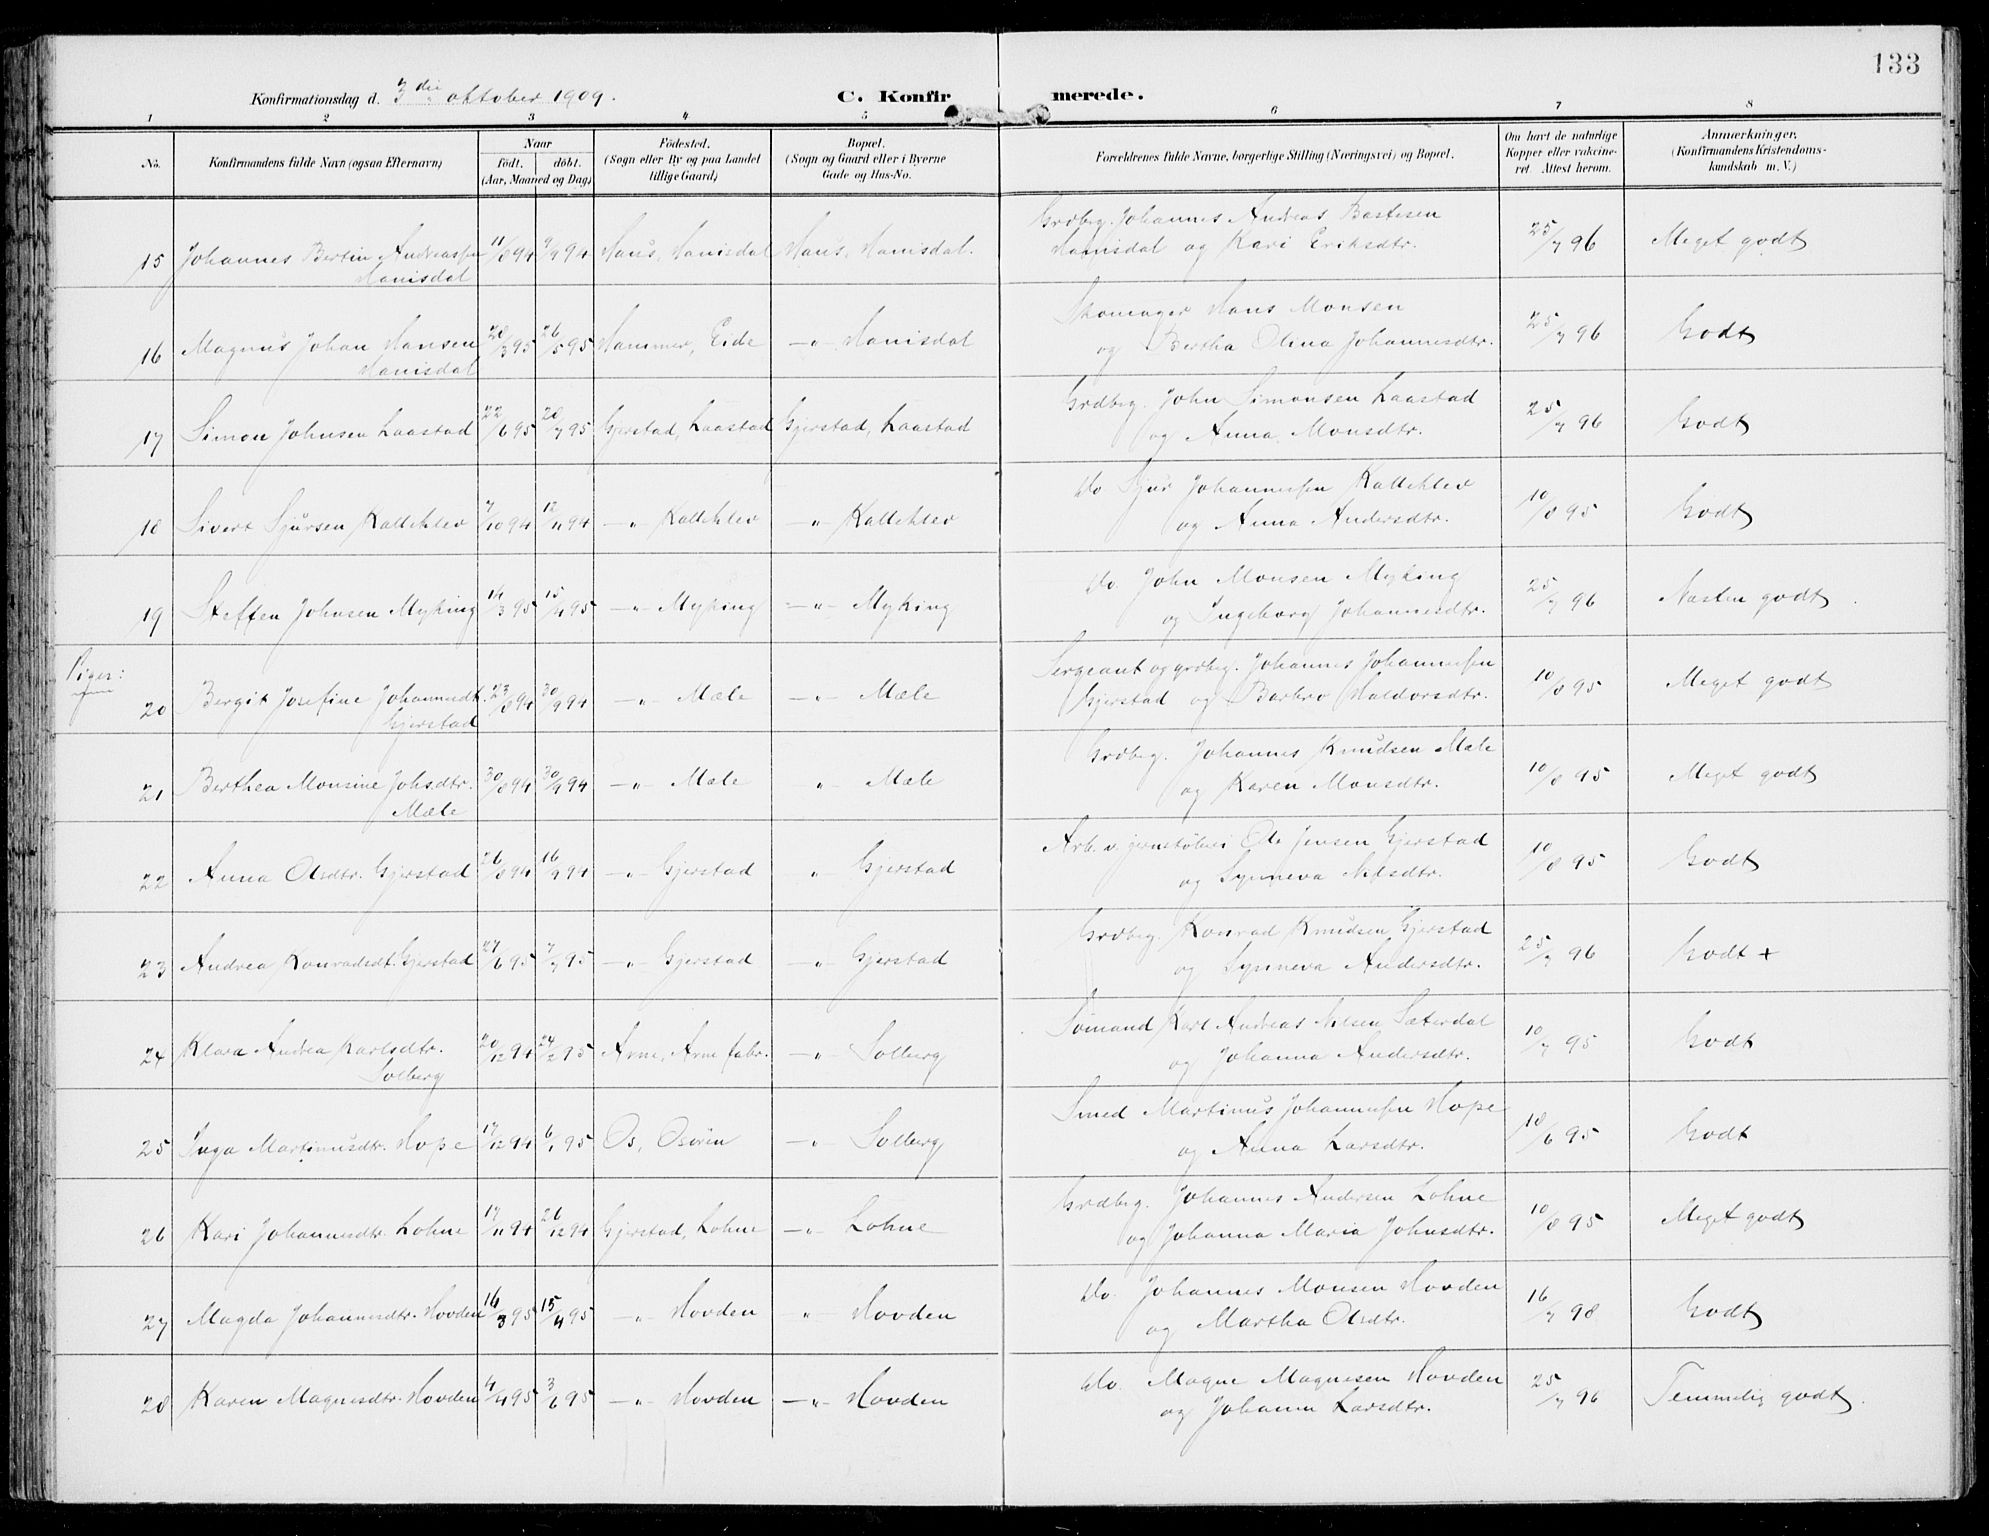 133
Konfirmationsdag d. 3die oktober 1909.
C. Konfirmerede.
1 2 3 4 5 6 7 8
No.
Konfirmandens fulde Navn (ogsaa Efternavn)
Naar
födt. döbt.
(Aar, Maaned og Dag)
Födested.
(Sogn eller By og paa Landet
tillige Gaard)
Bopæl.
(Sogn og Gaard eller i Byerne
Gade og Hus-No.
Forældrenes fulde Navne, borgerlige Stilling (Næringsvei) og Bopæl.
Om havt de naturlige
Kopper eller vakcine-
ret. Attest herom.
Anmærkninger,
(Konfirmandens Kristendoms-
kundskab m. V.)
15 Johannes Bertin Andreassen 11/8 94 9/9 94 Haus, Hanisdal Haus, Hanisdal. Grdbrg. Johannes Andreas Bastesen
Hanisdal Hanisdal og Kari Eriksdtr. 25/7 96 Meget godt
16 Magnus Johan Hansen 28/3 95 26/5 95 Hammer, Eide —„— Hanisdal Skomager Hans Monsen
Hanisdal og Bertha Olina Johannesdtr. 25/7 96 Godt
17 Simon Johnsen Laastad 22/6 95 28/7 95 Gjerstad, Laastad Gjerstad, Laastad Grdbrg. John Simonsen Laastad
og Anna Monsdtr. 25/7 96 Godt
18 Sivert Sjursen Kalleklev 7/10 94 12/11 94 —„— Kalleklev —„— Kalleklev do Sjur Johannessen Kalleklev
og Anna Andersdtr. 10/8 95 Godt
19 Steffen Johnsen Myking 14/3 95 15/4 95 —„— Myking —„— Myking do. John Monsen Myking
og Ingeborg Johannesdtr. 25/7 96 Næsten godt
Piger:
20 Bergit Josefine Johannesdt. 23/8 94 30/9 94 —„— Mæle —„— Mæle Sergeant og grdbrg. Johannes Johannessen
Gjerstad Gjerstad og Barbro Haldorsdtr. 10/8 95 Meget godt
21 Berthea Monsine Johsdtr. 30/8 94 30/9 94 —„— Mæle „ Mæle Grdbrg. Johannes Knudsen Mæle
Mæle og Karen Monsdtr. 10/8 95 Meget godt
22 Anna Olsdtr. Gjerstad 26/8 94 16/9 94 —„— Gjerstad „ Gjerstad Arb. v. jernstöberi Ole Jensen Gjerstad
og Synneva Nilsdtr. 10/8 95 Godt
23 Andrea Konradsdt. Gjerstad 27/6 95 7/7 95 —„— Gjerstad „ Gjerstad Grdbrg. Konrad Knudsen Gjerstad
og Synneva Andersdtr. 25/7 96 Godt +
24 Klara Andrea Karlsdtr. 20/12 94 24/2 95 Arne, Arne fabr. —„— Solberg Sömand Karl Andreas Nilsen Sæterdal
Solberg og Johanna Andersdtr. 10/7 95 Godt
25 Inga Martinusdtr. Hope 17/12 94 6/1 95 Os, Osören —„ Solberg Smed Martinus Johannessen Hope
og Anna Larsdtr. 18/6 95 Godt
26 Kari Johannesdtr. Lohne 17/11 94 26/12 94 Gjerstad, Lohne —„— Lohne Grdbrg. Johannes Andersen Lohne
og Johanna Maria Johnsdtr. 10/8 95 Meget godt
27 Magda Johannesdtr. Hovden 16/3 95 15/4 95 —„— Hovden „ Hovden do. Johannes Monsen Hovden
og Martha Olsdtr. 16/7 98 Godt
28 Karen Magnesdtr. Hovden 4/4 95 3/6 95 —„— Hovden —„— Hovden do. Magne Magnesen Hovden
og Johanna Larsdtr. 25/7 96 Temmelig godt.